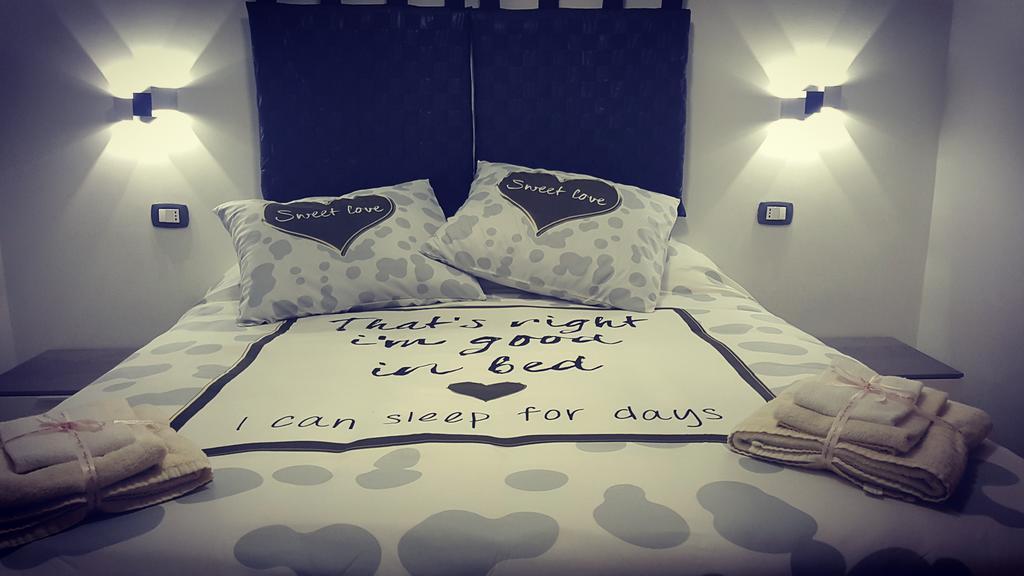 Sweet Love
Sweet Love
That's right
i'm good
in bed
I can sleep for days